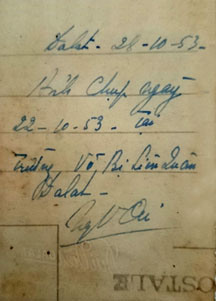 Dalat - 28-10-53.
Ảnh Chụp ngày
22-10-53 - Tại
Trường Võ Bị Liên Quân
Dalat -
POSTALE